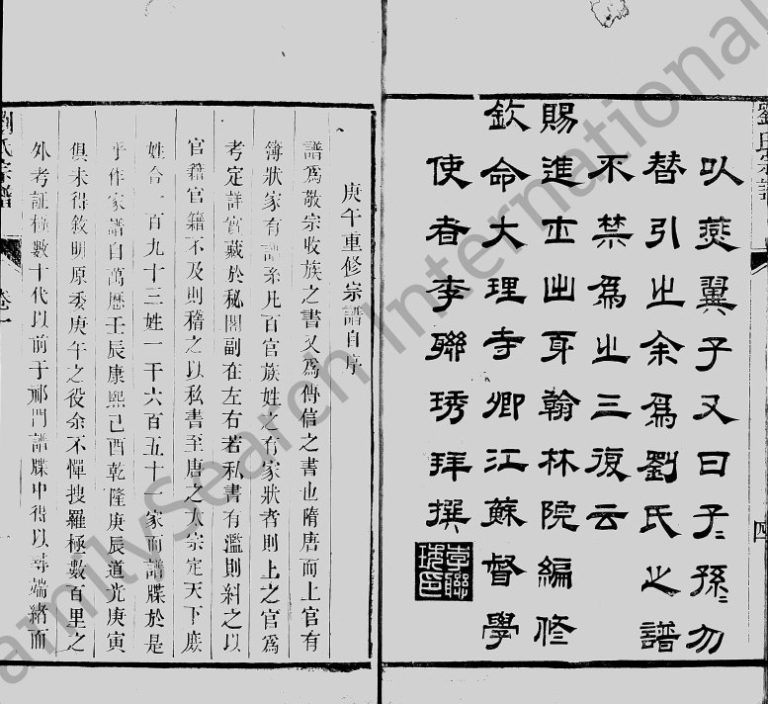 劉氏宗譜
四
以燕翼子又曰子〻孫〻勿
替引㞢余爲劉氏㞢譜
不禁爲㞢三復云
賜進士出身翰林院編修
欽命大理寺卿江蘇督學
使者李聯琇拜撰
李聯琇印
庚午重修宗譜自序
譜爲敬宗收族之書又爲傳信之書也隋唐而上官有
簿狀家有譜系凡百官族姓之有家狀者則上之官爲
考定詳實藏於秘閣副在左右若私書有濫則糾之以
官籍官籍不及則稽之以私書至唐之太宗定天下庶
姓合一百九十三姓一千六百五十一家而譜牒於是
乎作家譜自萬歷壬辰康熙己酉乾隆庚辰道光庚寅
俱未得敘明原委庚午之役余不憚搜羅極數百里之
外考証稽數十代以前于祁門譜牒中得以尋端緒而
劉氏宗譜
卷一
一
FamilySearch International